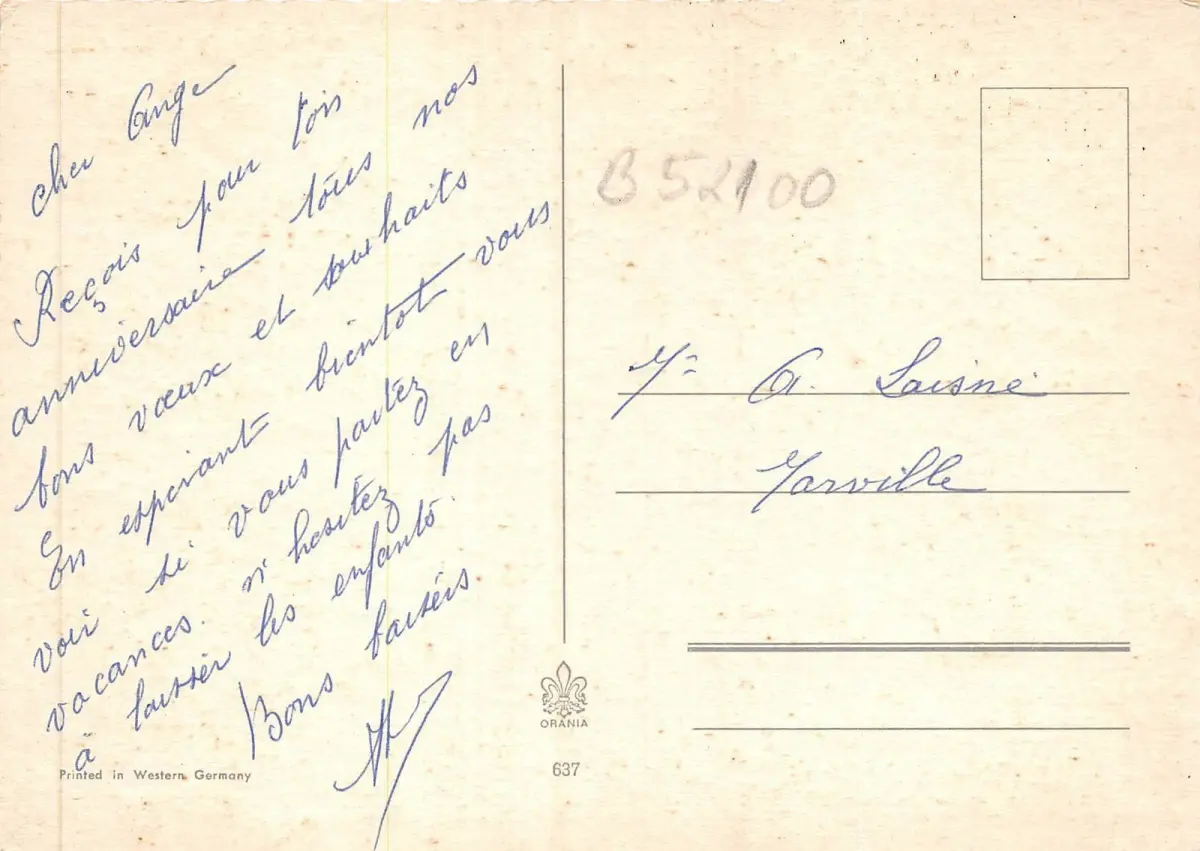 cher Ange
Reçois pour ton
anniversaire tous nos
bons vœux et souhaits
En esperant bientot vous
voir si vous partez en
vacances. n'hesitez pas
à laisser les enfants.
Bons baisers
B 52100
Mr A. Laisné
Marville
ORANIA
637
Printed in Western Germany